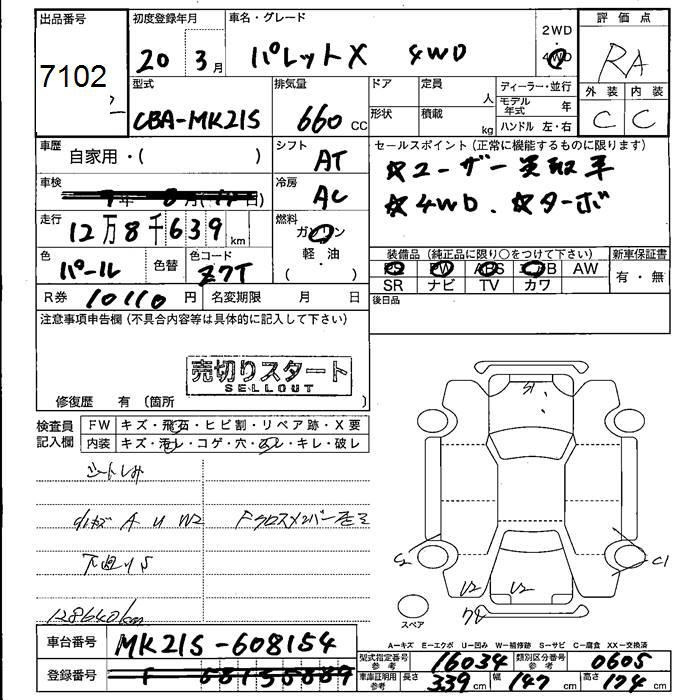 出品番号 初度登録年月 車名・グレード 2WD 評価点
7102 20 3月 パレットX 4WD 4WD RA
型式 排気量 ドア 定員 人 ディーラー・並行 外装 内装
CBA-MK21S 660cc 形状 積載 kg モデル年式 年 C C
ハンドル 左・右
車歴 自家用・( ) シフト AT セールスポイント(正常に機能するものに限ります)
☆ユーザー買取車
車検 冷房 AC ☆4WD. ☆ターボ
走行 12万8千639km 燃料 ガソリン
軽・油
( )
色 パール 色替 色コード Z7T 装備品(純正品に限り○をつけて下さい) 新車保証書
PS PW ABS エアB AW 有・無
SR ナビ TV カワ
R券 10110円 名変期限 月 日 後日品
注意事項申告欄(不具合内容等は具体的に記入して下さい)
売切りスタート
SELLOUT
修復歴 有(箇所 )
検査員記入欄 FW キズ・飛石・ヒビ割・リペア跡・X要
内装 キズ・汚レ・コゲ・穴・ヌレ・キレ・破レ
シートしみ
A U W2
下廻りS
128640km
C2 C1
U2 U2
スペア
A=キズ E=エクボ U=凹み W=補修跡 S=サビ C=腐食 XX=交換済
車台番号 MK21S-608154
型式指定番号 参考 16034 類別区分番号 参考 0605
登録番号
車庫証明用 参考 長さ 339cm 幅 147cm 高さ 174cm